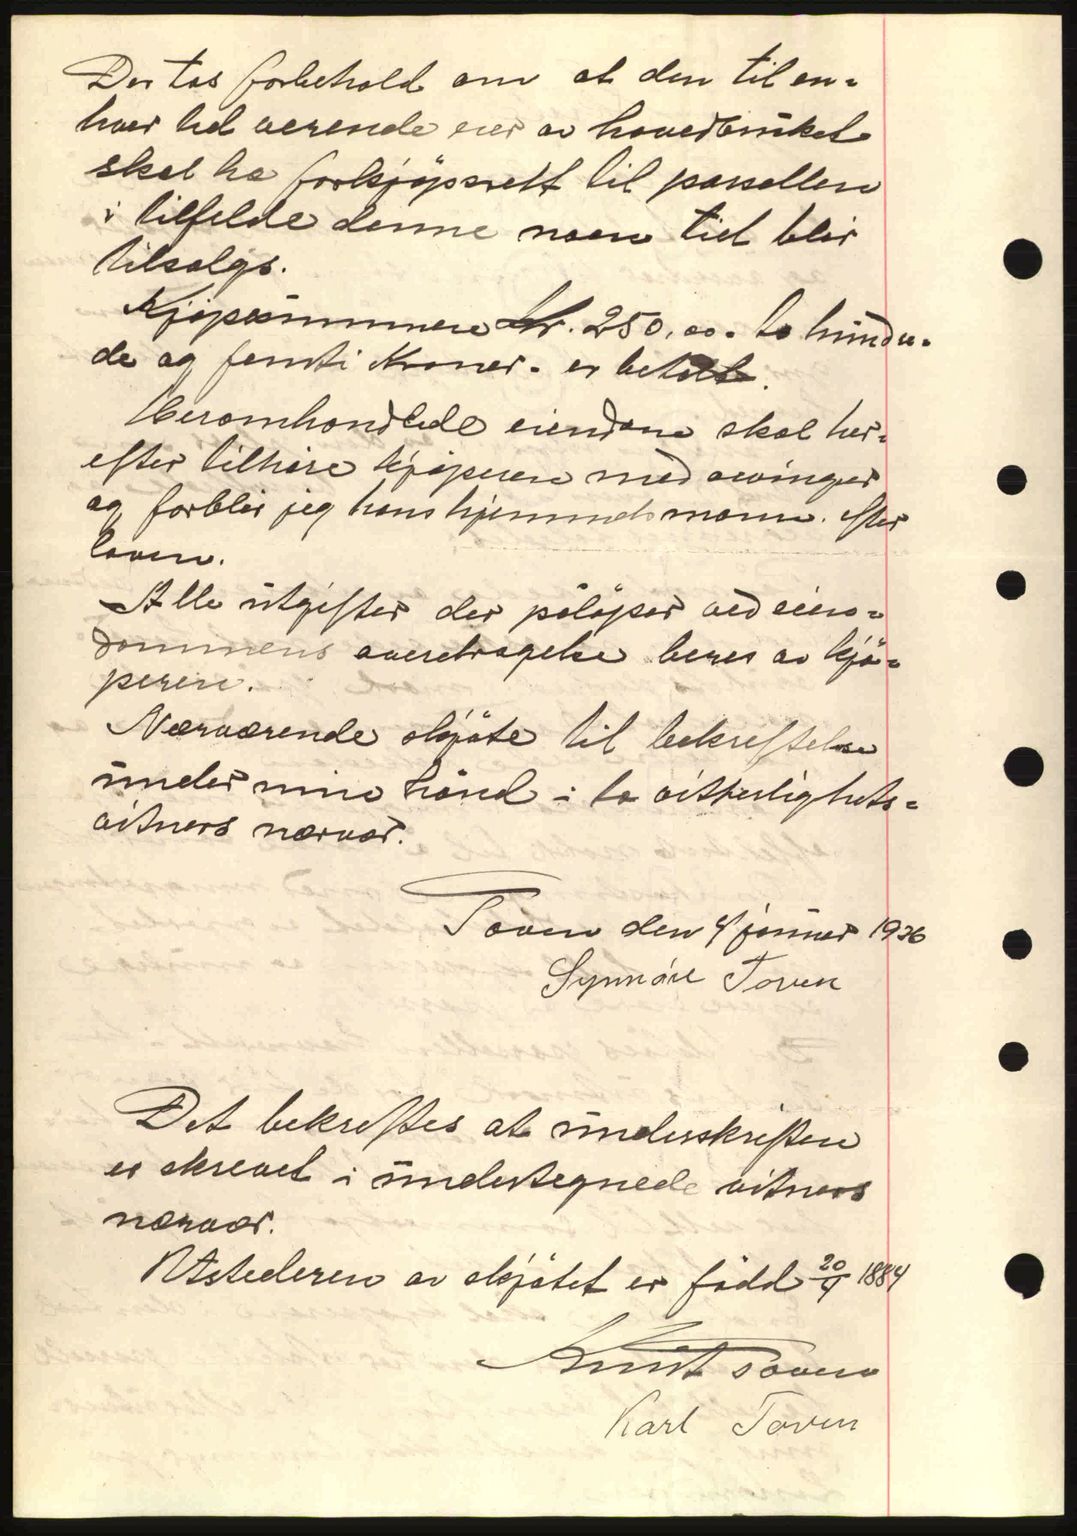 Der tas forbehold om at den til en-
hver tid verende eier av hovedbruket
skal ha forkjøpsrett til parsellen
i tilfelde denne noen tid blir
tilsalgs.
Kjøpesummen kr. 250,00 - to hundre-
de og femti kroner - er betalt.
Heromhandlede eiendom skal her-
efter tilhøre kjøperen med
og forblir jeg hans hjemmelsmann efter
loven.
Alle utgifter der påløper ved eien-
dommens overdragelse beres av kjø-
peren.
Nærværende skjøte til bekreftelse
under min hånd i to vitterlighets-
vitners nærvær.
Toven den 4 januar 1936
Synnøve Toven
Det bekreftes at underskriften
er skrevet i undertegnede vitners
nærvær.
Utstederen av skjøtet er född 20/4 1884
Knut Toven
Karl Toven